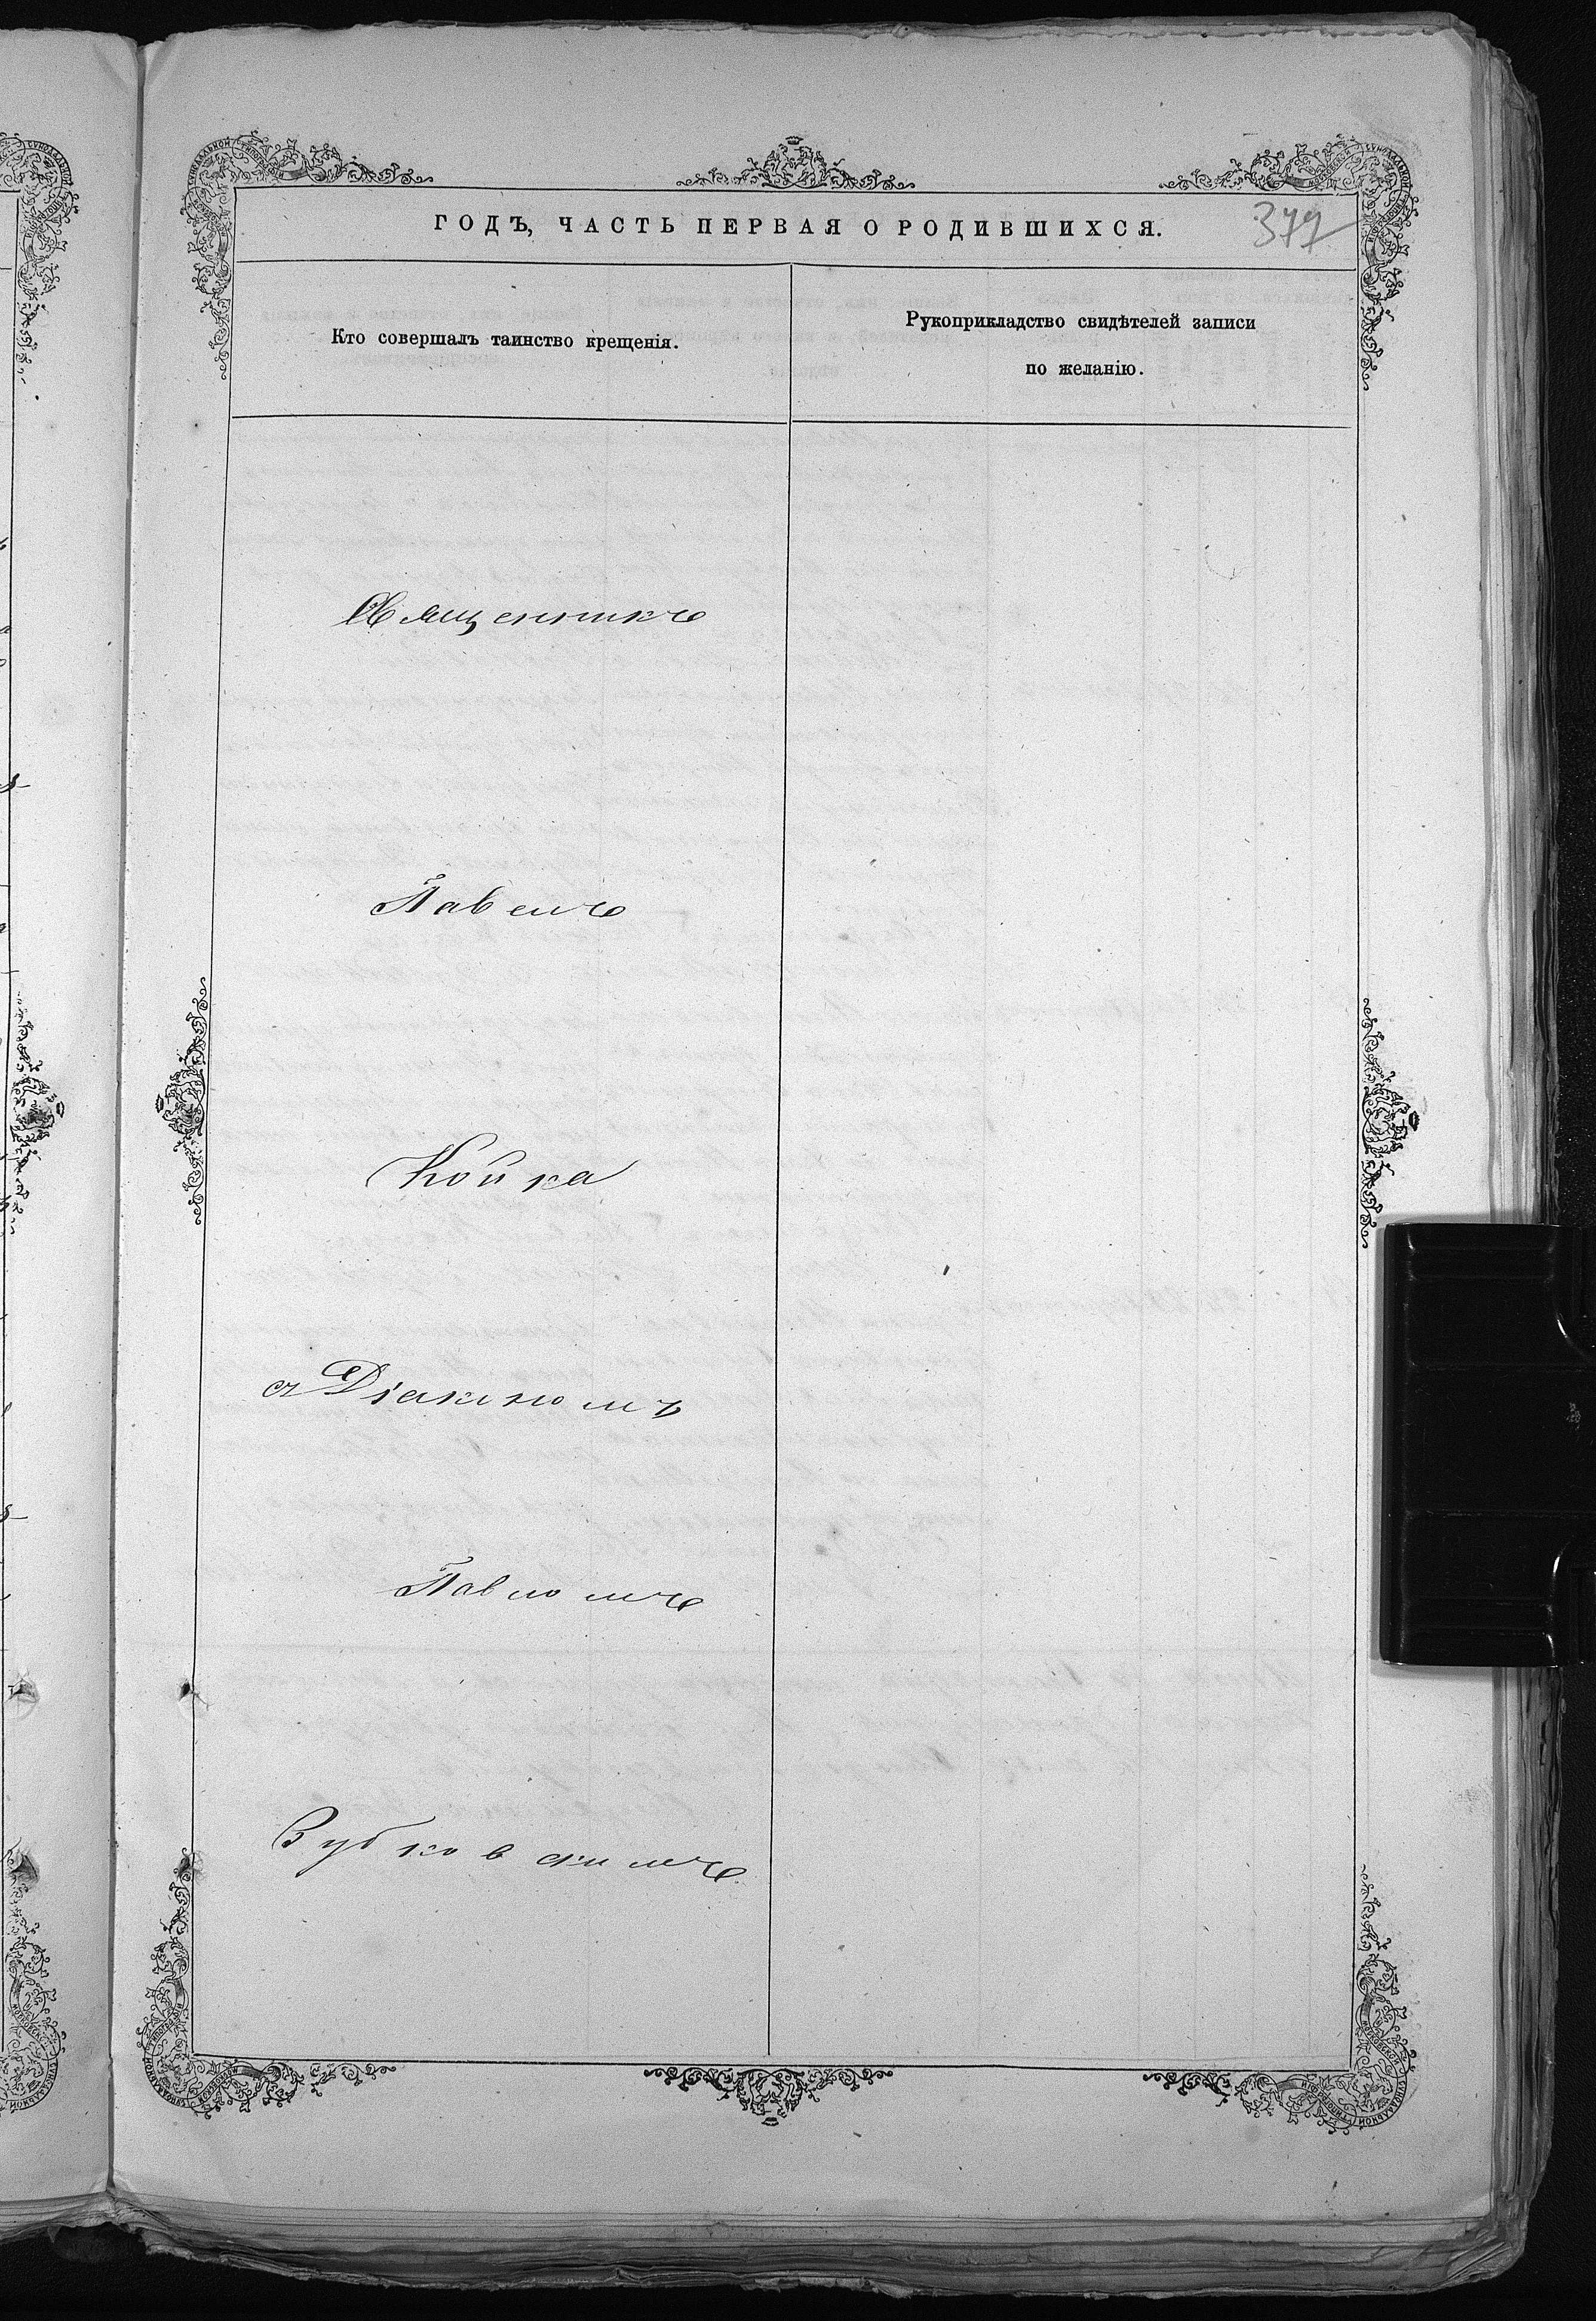 ГОДЪ, ЧАСТЬ ПЕРВАЯ О РОДИВШИХСЯ.
377
Кто совершалъ таинство крещенія.
Рукоприкладство свидѣтелей записи
по желанію.
Священникъ
Павелъ
Койка
съ Діакономъ
Павломъ
Зубковскимъ